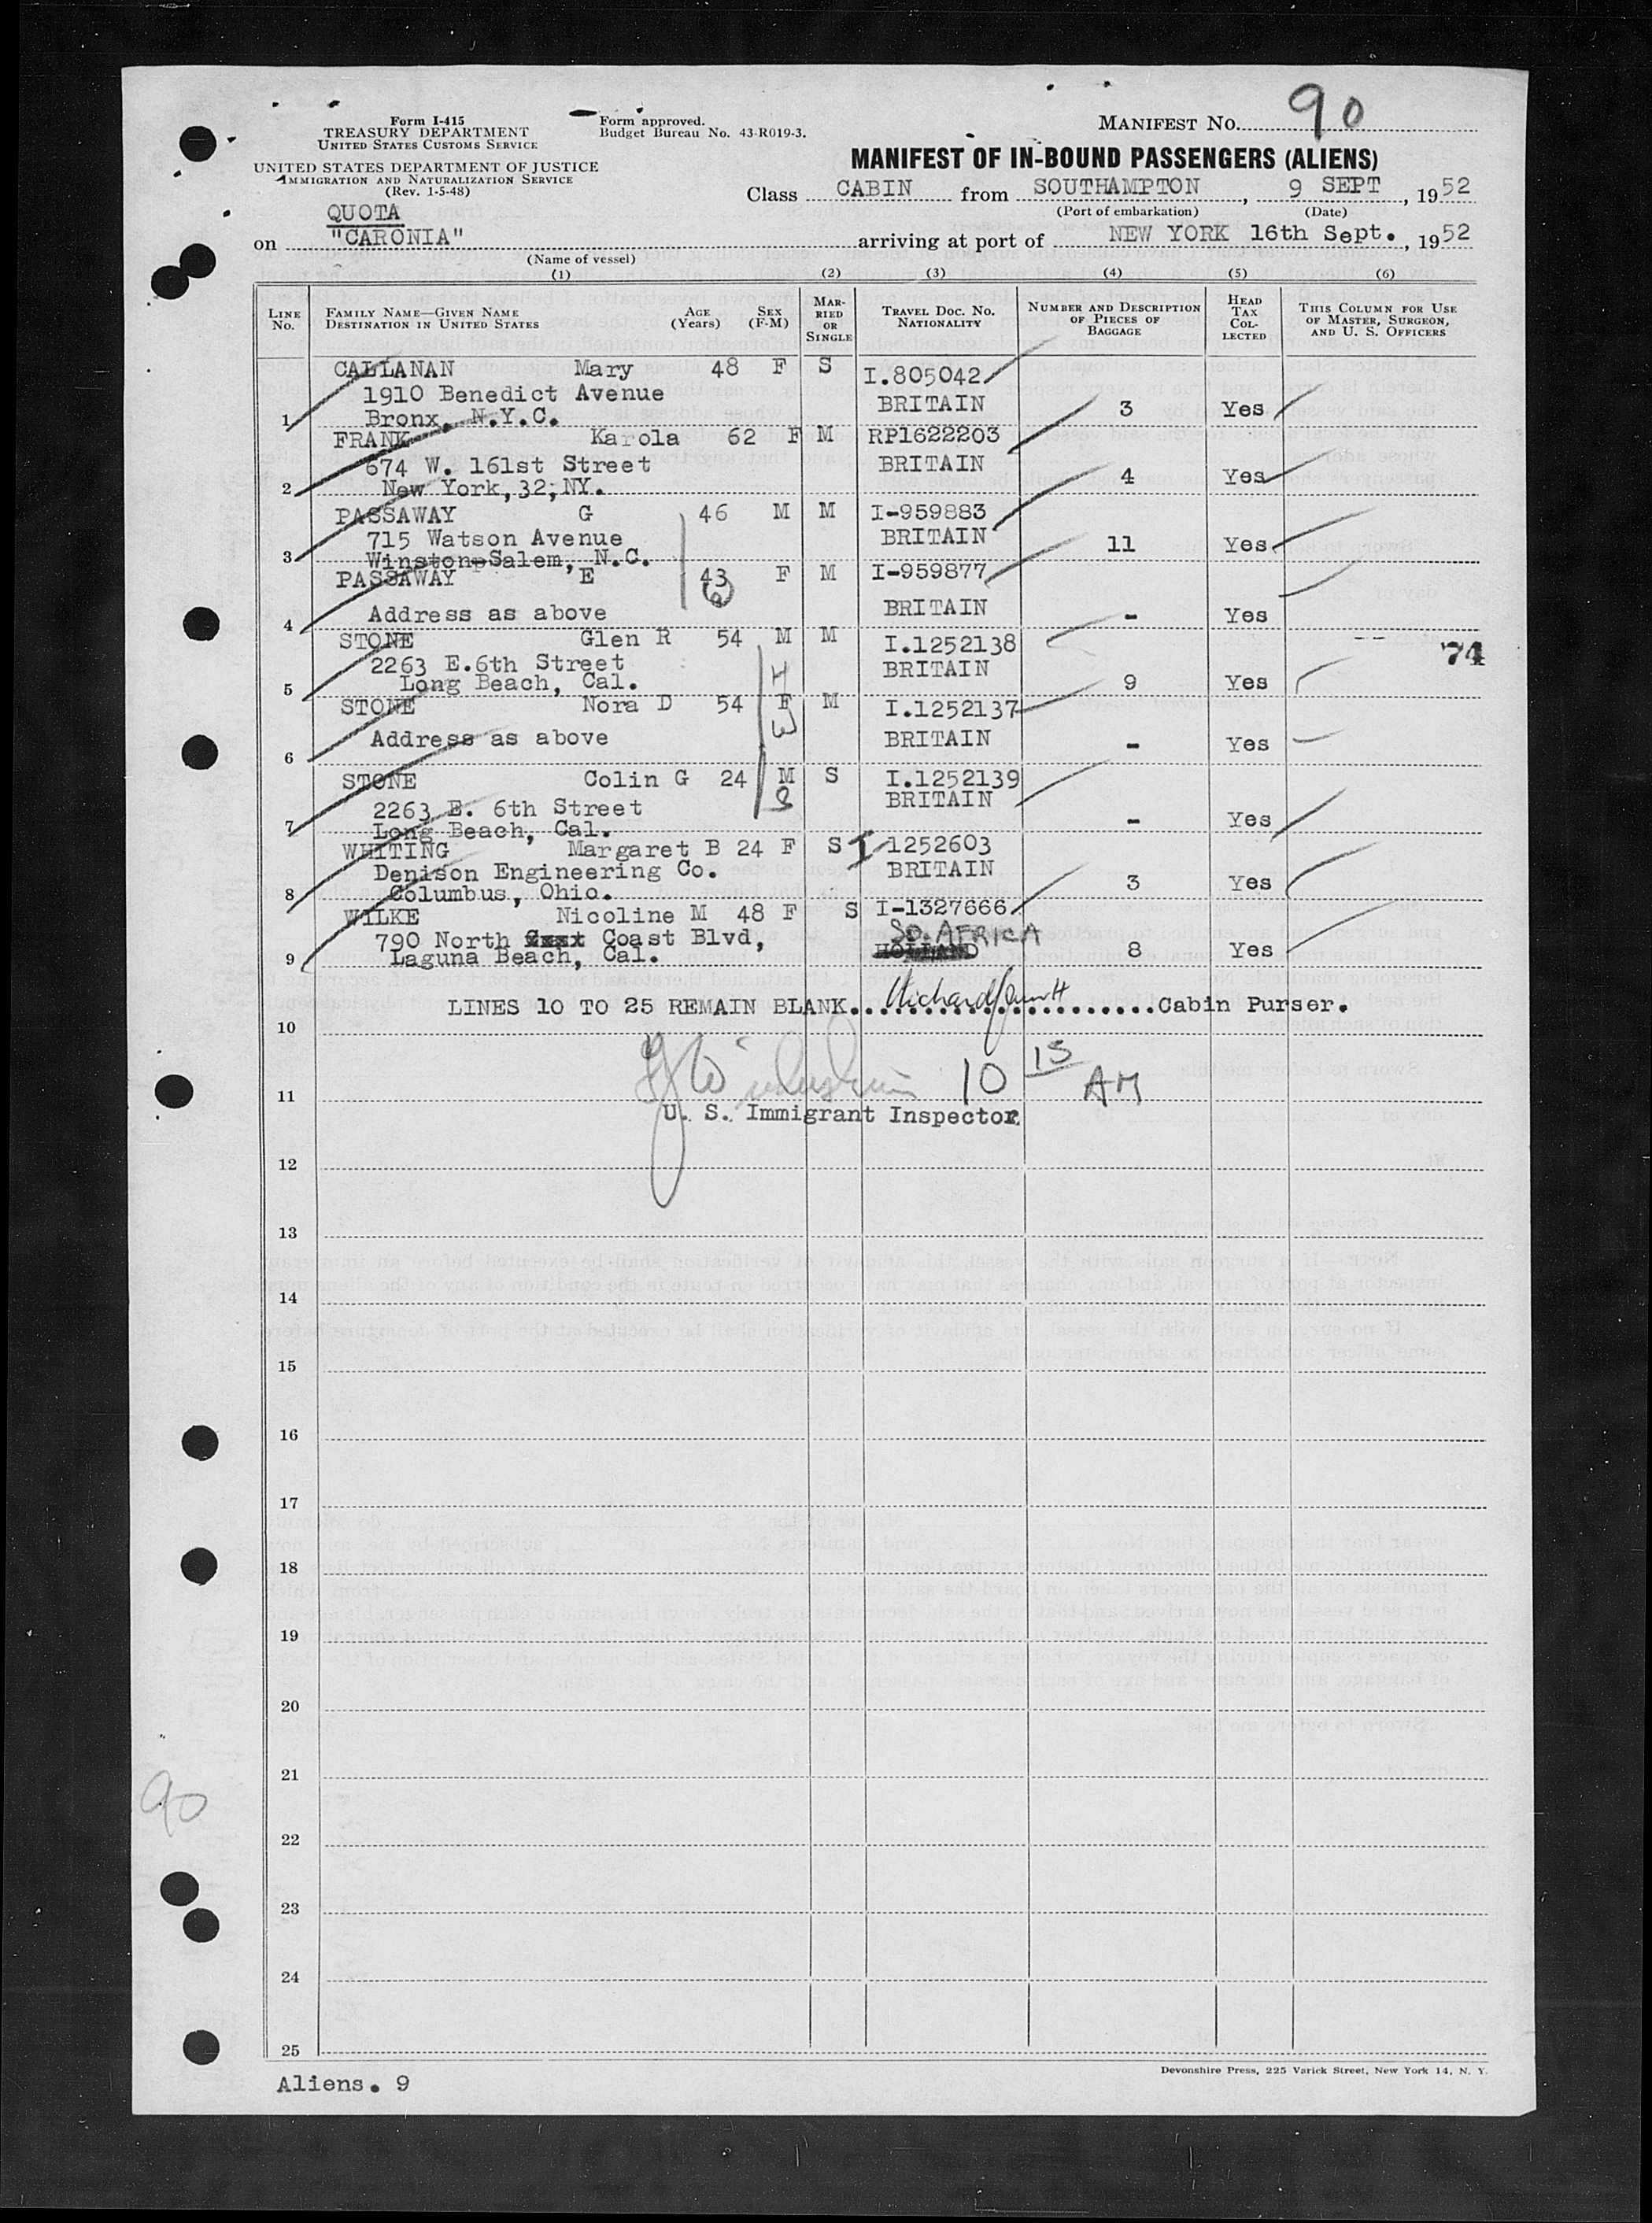 Form I-415
TREASURY DEPARTMENT
UNITED STATES CUSTOMS SERVICE
UNITED STATES DEPARTMENT OF JUSTICE
IMMIGRATION AND NATURALIZATION SERVICE
(Rev. 1-5-48)
Form approved.
Budget Bureau No. 43-R019-3.
MANIFEST NO. 90
MANIFEST OF IN-BOUND PASSENGERS (ALIENS)
Class CABIN from SOUTHAMPTON, 9 SEPT, 1952
(Port of embarkation) (Date)
QUOTA
on "CARONIA" arriving at port of NEW YORK 16th Sept., 1952
(Name of vessel)
(1) (2) (3) (4) (5) (6)
LINE No. FAMILY NAME—GIVEN NAME DESTINATION IN UNITED STATES AGE (Years) SEX (F-M) MARRIED OR SINGLE TRAVEL DOC. NO. NATIONALITY NUMBER AND DESCRIPTION OF PIECES OF BAGGAGE HEAD TAX COLLECTED THIS COLUMN FOR USE OF MASTER, SURGEON, AND U. S. OFFICERS
CALLANAN Mary 48 F S I.805042
1910 Benedict Avenue BRITAIN 3 Yes
1 Bronx, N.Y.C.
FRANK Karola 62 F M RP1622203
674 W. 161st Street BRITAIN 4 Yes
2 New York,32,NY.
PASSAWAY G 46 M M I-959883
715 Watson Avenue BRITAIN 11 Yes
3 Winston-Salem, N.C.
PASSAWAY E 43 F M I-959877
4 Address as above BRITAIN - Yes
STONE Glen R 54 M M I.1252138
74
2263 E.6th Street BRITAIN
5 Long Beach, Cal. 9 Yes
STONE Nora D 54 F M I.1252137
6 Address as above BRITAIN - Yes
STONE Colin G 24 M S I.1252139
2263 E. 6th Street BRITAIN
7 Long Beach, Cal. - Yes
WHITING Margaret B 24 F S I 1252603
Denison Engineering Co. BRITAIN
8 Columbus, Ohio. 3 Yes
WILKE Nicoline M 48 F S I-1327666
790 North Coast Blvd, SO. AFRICA
9 Laguna Beach, Cal. HOLLAND 8 Yes
LINES 10 TO 25 REMAIN BLANK. Cabin Purser.
10
10 15 AM
11
U. S. Immigrant Inspector
12
13
14
15
16
17
18
19
20
21
90
22
23
24
25
Devonshire Press, 225 Varick Street, New York 14, N. Y.
Aliens. 9